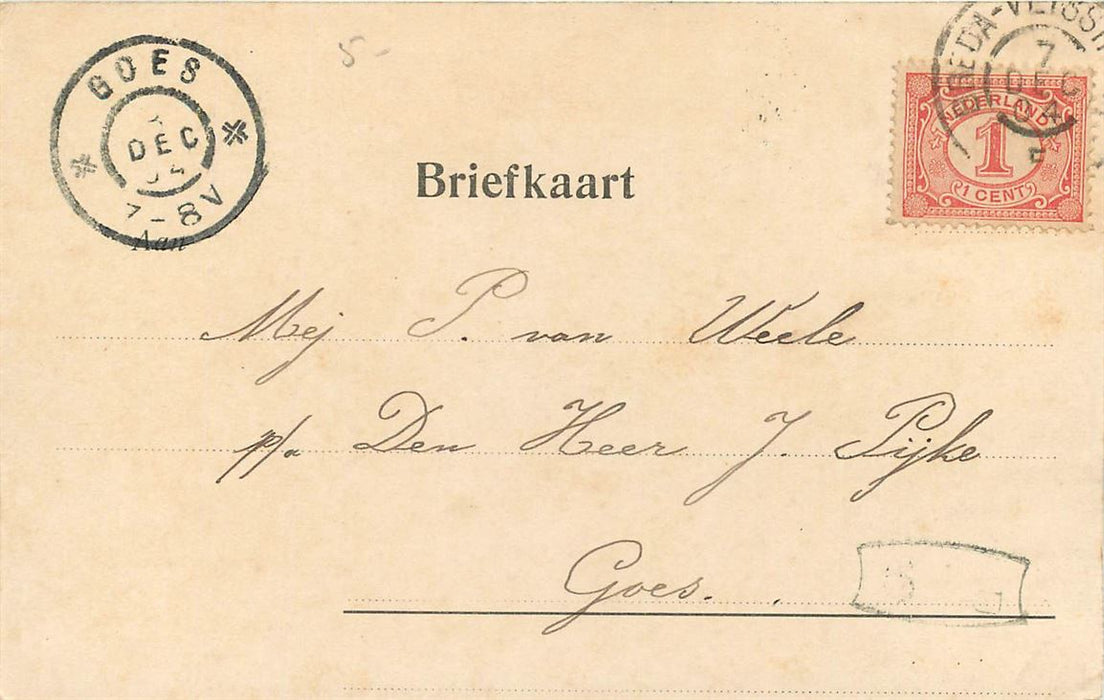 5-
GOES
DEC
04
7-8V
BREDA-VLISSI
7
DEC
04
NEDERLAND
1
1 CENT
Briefkaart
Aan
Mej P. van Weele
p/a Den Heer J. Pijke
Goes.